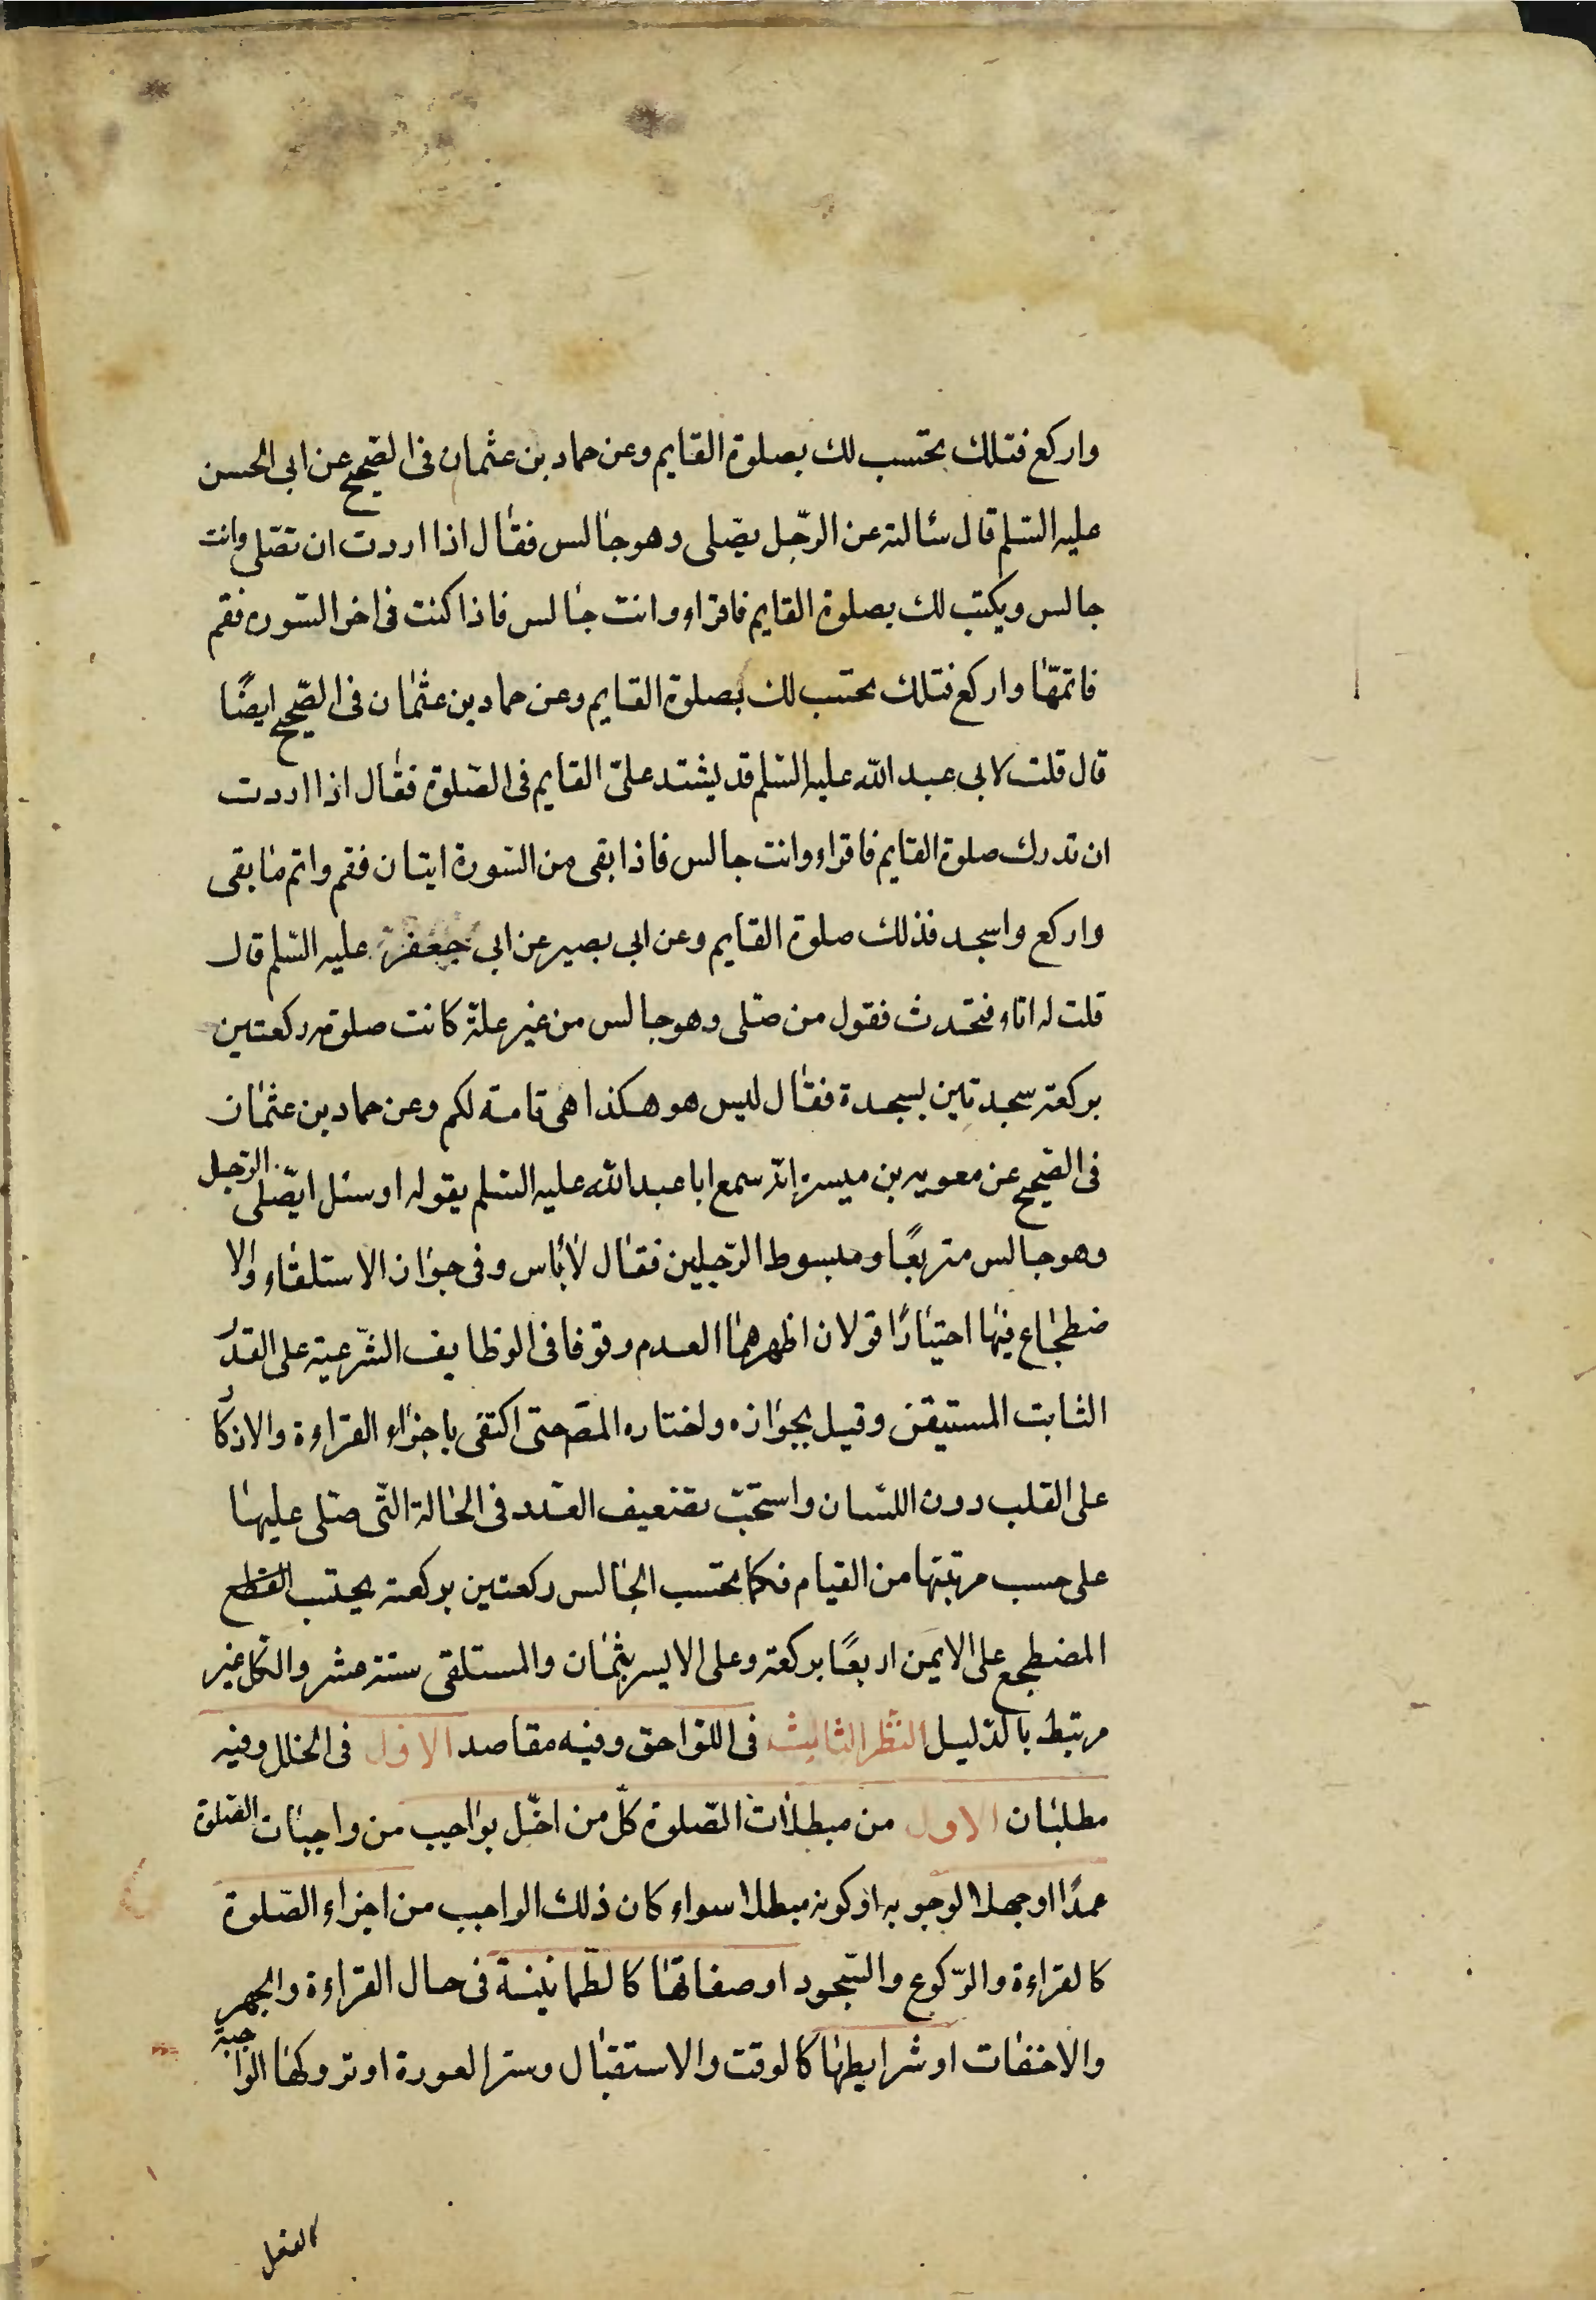 واركع فتلك يحتسب لك بصلوة القايم وعن حماد بن عثمان فى الصّحيح عن ابى الحسن
عليه السّلم قال سئالته عن الرّجل يصّلى وهو جالس فقال اذا اردت ان تصّلى وانت
جالس ويكتب لك بصلوة القايم فاقراء وانت جالس فاذا كنت فى اخر السّوره فقم
فاتمّها واركع فتلك يحتسب لك بصلوة القايم وعن حماد بن عثمان فى الصّحيح ايضًا
قال قلت لابى عبد الله عليه السّلم قد يشتد علىّ القايم فى الصّلوة فقال اذا اردت
ان تدرك صلوة القايم فاقراء وانت جالس فاذا بقى من السّورة ايتان فقم واتم ما بقى
واركع واسجد فذلك صلوة القايم وعن ابى بصير عن ابى جعفر عليه السّلم قال
قلت له اناء فتحدث فقول من صّلى وهو جالس من غير علّة كانت صلوته ركعتين
بركعته سجدتين بسجدة فقال ليس هو هكذا هى تامة لكم وعن حماد بن عثمان
فى الصّحيح عن معويه بن ميسرة انّه سمع ابا عبد الله عليه السّلم يقوله او سئل ايصّلى الرّجل
وهو جالس متربعًا ومبسوط الرّجلين فقال لا باس وفى جواز الاستلقاء والا
ضطجاع فيها اختيارًا قولان اظهرهما العدم وقوفا فى الوظايف الشّرعية على القدر
الثابت المستيقن وقيل بجوازه واختاره المصّ حتى اكتفى باجزاء القراءة والاذكار
على القلب دون اللسّان واستحبّ تضعيف العدد فى الحالة التّى صّلى عليها
على حسب مرتبتها من القيام فكما يحتسب الجالس ركعتين بركعته يحتسب القطع
المضطجع على الايمن اربعًا بركعته وعلى الايسر بثمان والمستلقى ستة عشر والكل غير
مرتبط بالدّليل النّظر الثالث فى اللواحق وفيه مقاصد الاول فى الخلل وفيه
مطلبان الاول من مبطلات الصّلوة كلّ من اخّل بواجب من واجبات الصّلوة
عمدًا او جهلا لوجوبه او كونه مبطلا سواء كان ذلك الواجب من اجزاء الصّلوة
كالقراءة والرّكوع والسّجود او صفاتها كالطّمانينة فى حال القراءة والجهر
والاخفات او شرايطها كالوقت والاستقبال وستر العورة او تروكها الواجبة
كالفعل